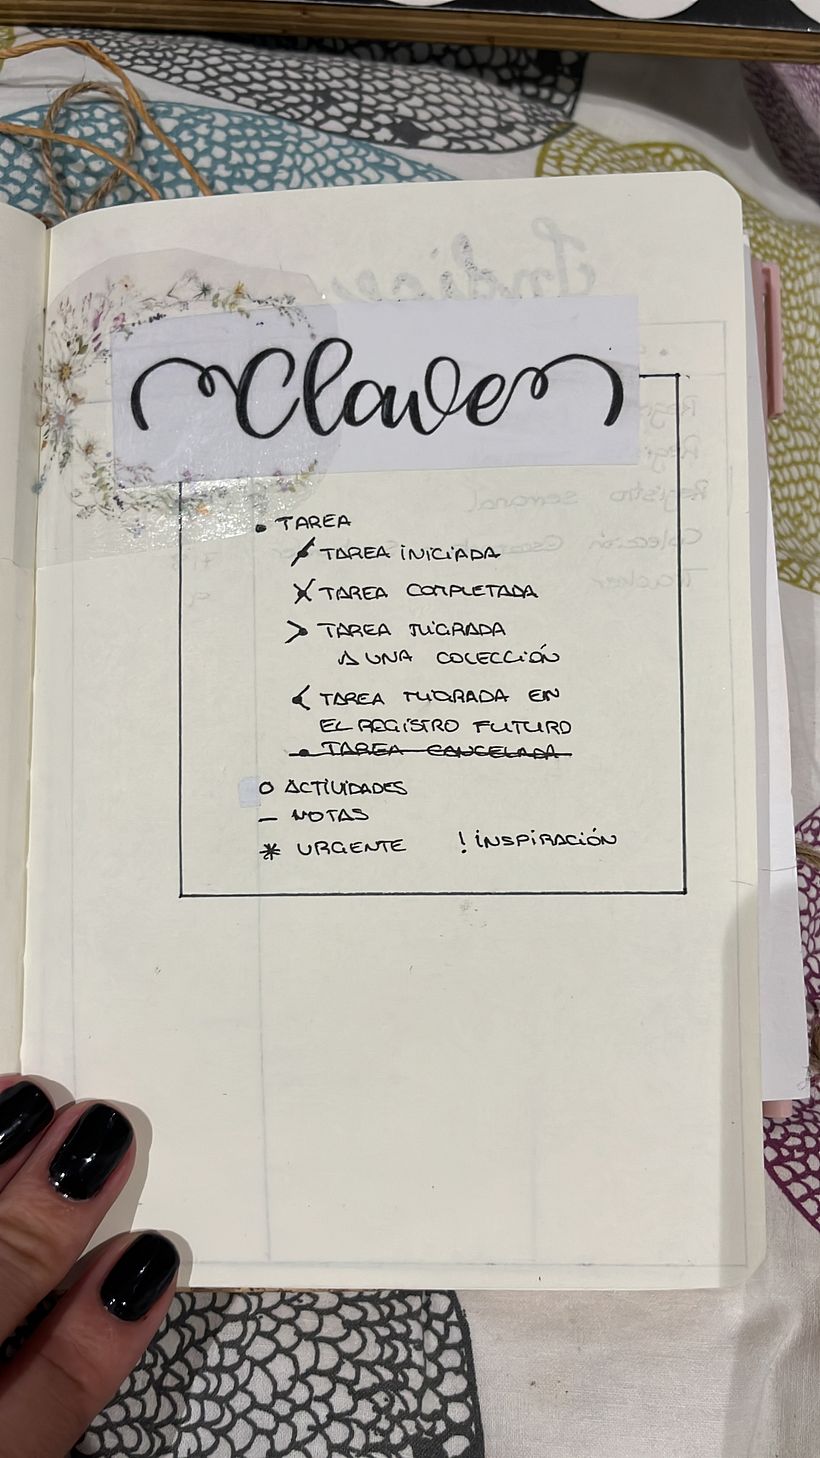 Clave
• TAREA
/ TAREA INICIADA
X TAREA COMPLETADA
> TAREA MIGRADA
A UNA COLECCIÓN
< TAREA MIGRADA EN
EL REGISTRO FUTURO
• TAREA CANCELADA
O ACTIVIDADES
– NOTAS
* URGENTE ! INSPIRACIÓN